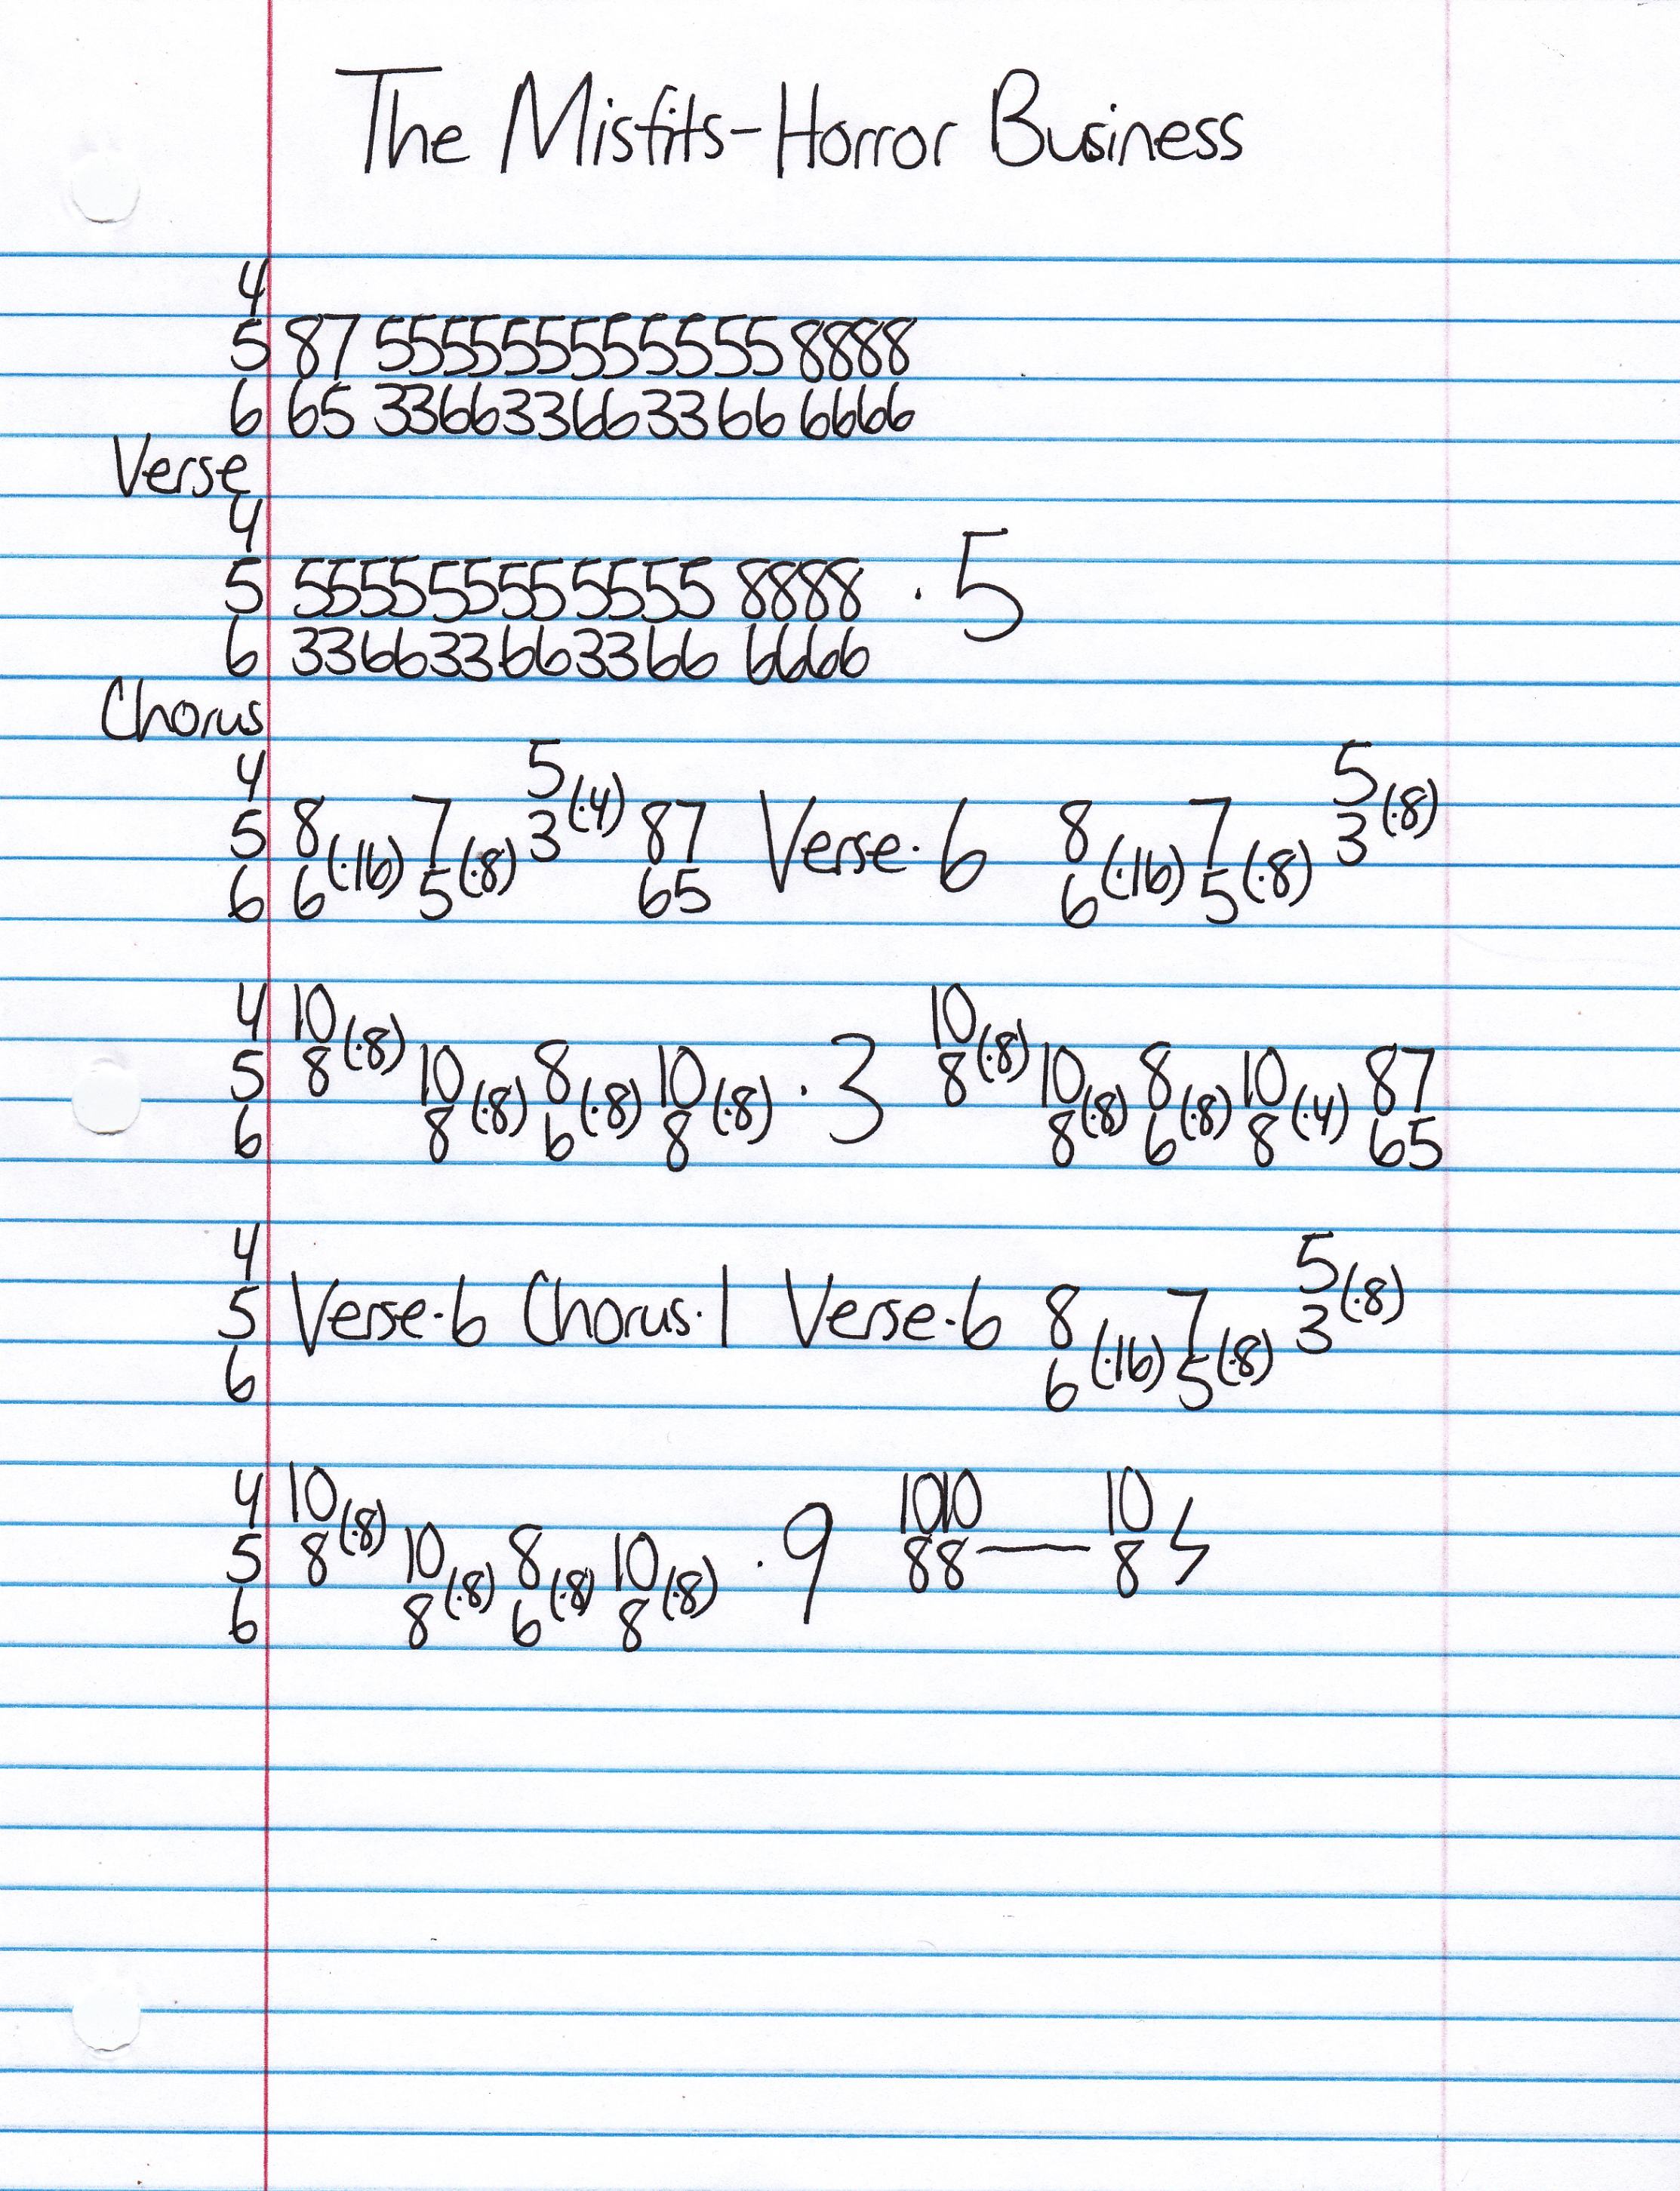 The Misfits-Horror Business
4
5 87 5555555555555 8888
6 65 336633663366 6666
Verse
4
5 555555555555 8888 ·5
6 336633663366 6666
Chorus
4 5 5
5 8(·16) 7(·8) 3(·4) 87 Verse·6 8(·16) 7(·8) 3(·8)
6 6 5 65 6 5
4 10 10
5 8(·8) 10(·8) 8(·8) 10(·8) ·3 8(·8) 10(·8) 8(·8) 10(·4) 87
6 8 6 8 8 6 8 65
4 5
5 Verse·6 Chorus·1 Verse·6 8(·16) 7(·8) 3(·8)
6 6 5
4 10 1010 10
5 8(·8) 10(·8) 8(·8) 10(·8) ·9 88—8
6 8 6 8